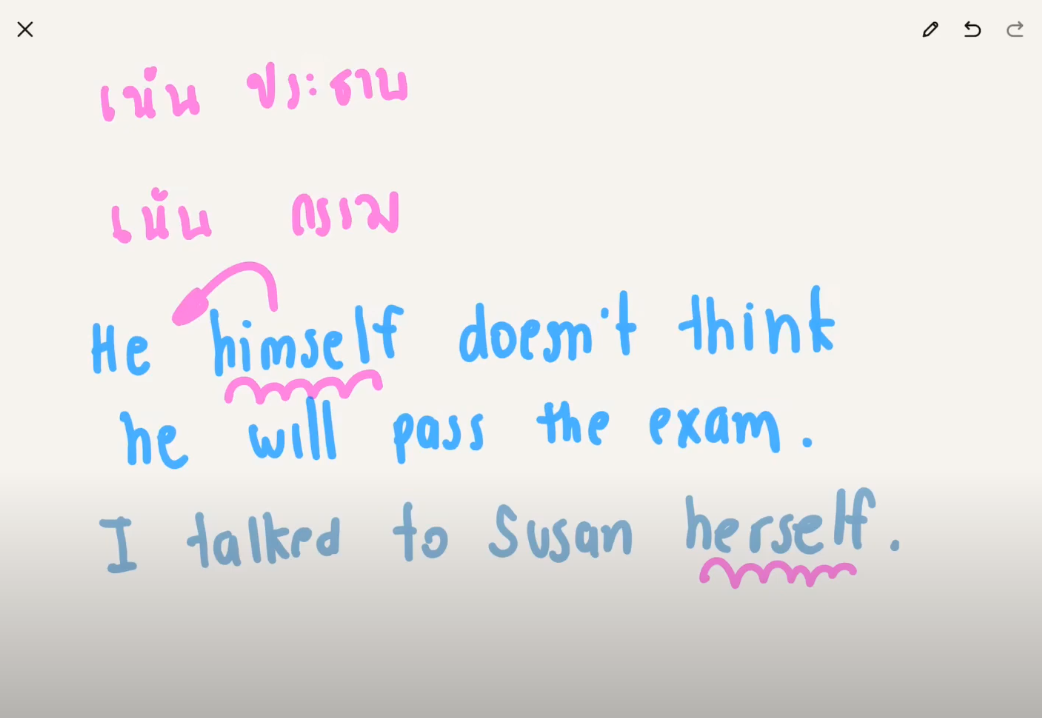 เน้น ประธาน
เน้น กรรม
He himself doesn't think
he will pass the exam.
I talked to Susan herself.